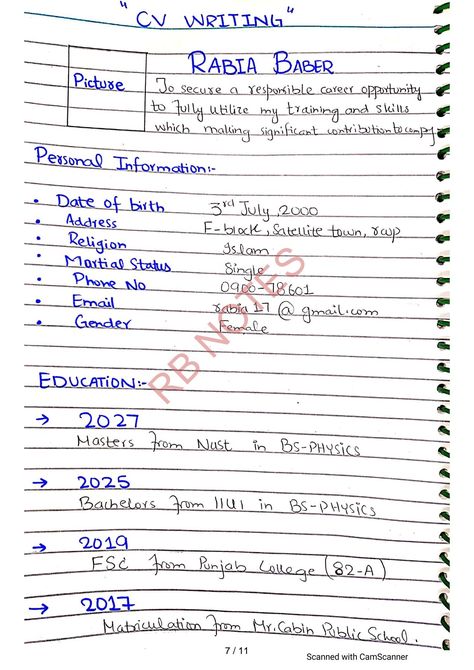 "CV WRITING"
RABIA BABER
Picture
To secure a responsible career opportunity
to fully utilize my training and skills
which making significant contribution to
Personal Information:-
• Date of birth 3rd July, 2000
• Address F-block, Satellite town, rwp
• Religion Islam
• Martial Status Single
• Phone No 0900-78601
• Email rabia17@gmail.com
• Gender Female
RB NOTES
EDUCATION:-
→ 2027
Masters from Nust in BS-PHYSICS
→ 2025
Bachelors from IIUI in BS-PHYSICS
→ 2019
FSC from Punjab College (82-A)
→ 2017
Matriculation from Mr.Cabin Public School.
7 / 11
Scanned with CamScanner